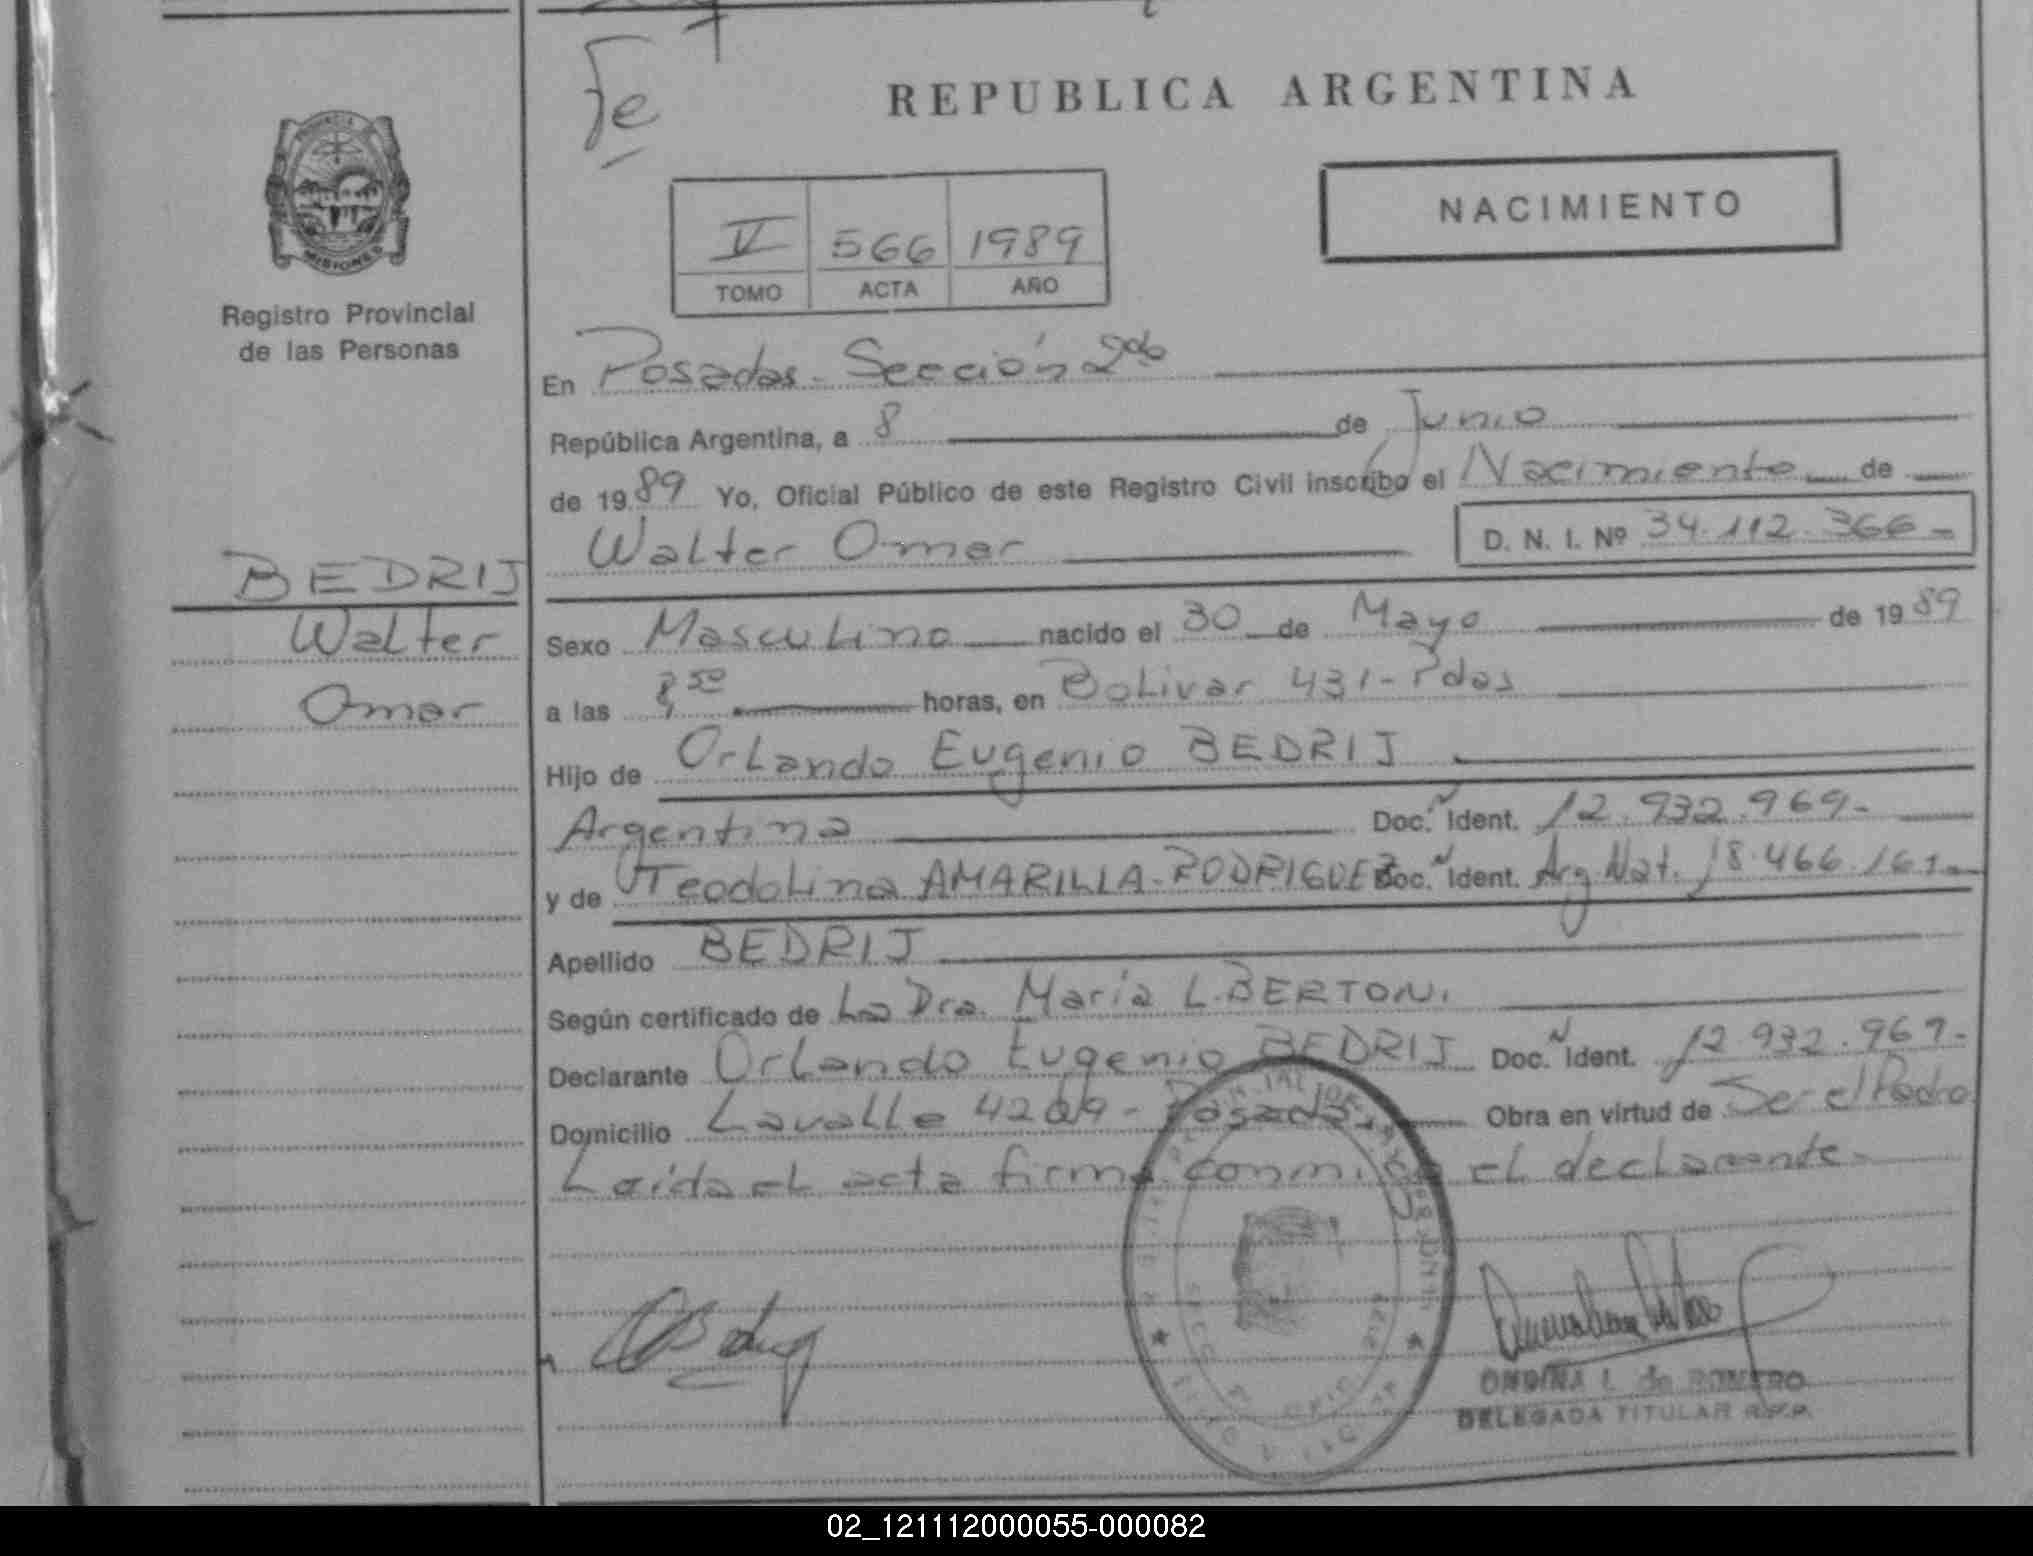 Fe
REPUBLICA ARGENTINA
NACIMIENTO
V 566 1989
TOMO ACTA AÑO
PROVINCIA
MISIONES
Registro Provincial
de las Personas
BEDRIJ
Walter
Omar
En Posadas - Sección 2da
República Argentina, a 8 de Junio
de 1989 Yo, Oficial Público de este Registro Civil inscribo el Nacimiento de
Walter Omar D. N. I. Nº 34.112.366-
Sexo Masculino nacido el 30 de Mayo de 1989
a las 8,50 horas, en Bolivar 431 - Pdas
Hijo de Orlando Eugenio BEDRIJ
Argentina Doc. Ident. 12.932.969-
y de Teodolina AMARILLA-RODRIGUEZ Doc. Ident. Arg. Nat. 18.466.161-
Apellido BEDRIJ
Según certificado de La Dra. María L. BERTONI
Declarante Orlando Eugenio BEDRIJ Doc. Ident. 12.932.969-
Domicilio Lavalle 4209 - Posadas Obra en virtud de Ser el Padre
Leída el acta firma conmigo el declarante-
ONDINA L. de ROMERO
DELEGADA TITULAR R.P.P.
02_121112000055-000082